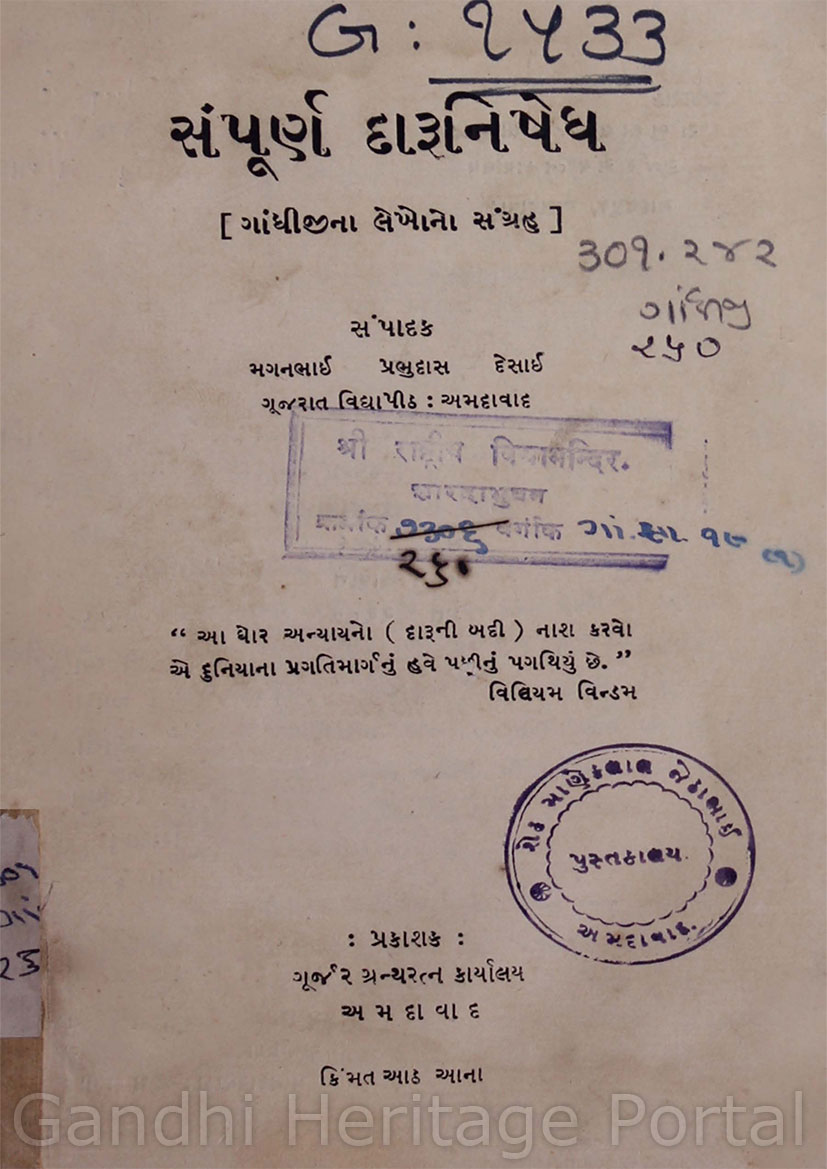 G : ૧૫૩૩
સંપૂર્ણ દારૂનિષેધ
[ ગાંધીજીના લેખોનો સંગ્રહ ]
૩૦૧. ૨૪૨
ગાંધીજી
૨૫૦
સંપાદક
મગનભાઈ પ્રભુદાસ દેસાઈ
ગૂજરાત વિદ્યાપીઠ : અમદાવાદ
શ્રી રાષ્ટ્રીય વિદ્યામન્દિર.
શારદાભુવન
વર્ગાંક ગાં. સા. ૧૭ (૧)
“ આ ઘોર અન્યાયનો ( દારૂની બદી ) નાશ કરવો
એ દુનિયાના પ્રગતિમાર્ગનું હવે પછીનું પગથિયું છે. ”
વિલિયમ વિન્ડમ
શેઠ માણેકલાલ જેઠાભાઈ
પુસ્તકાલય.
અમદાવાદ.
: પ્રકાશક :
ગૂર્જર ગ્રન્થરત્ન કાર્યાલય
અ મ દા વા દ
કિંમત આઠ આના
Gandhi Heritage Portal